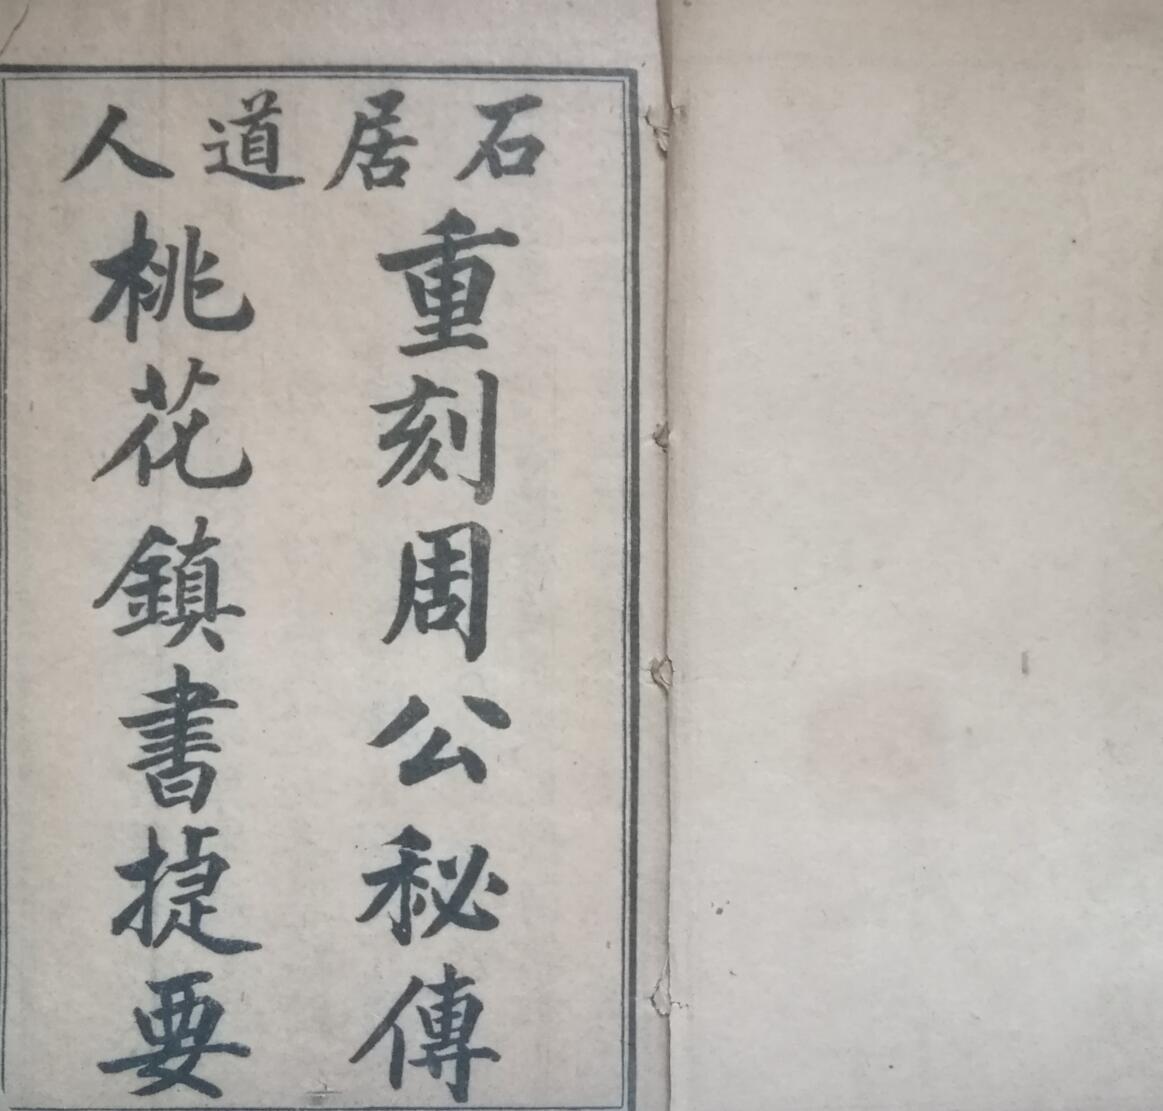 石居道人
重刻周公秘傳
桃花鎮書捷要